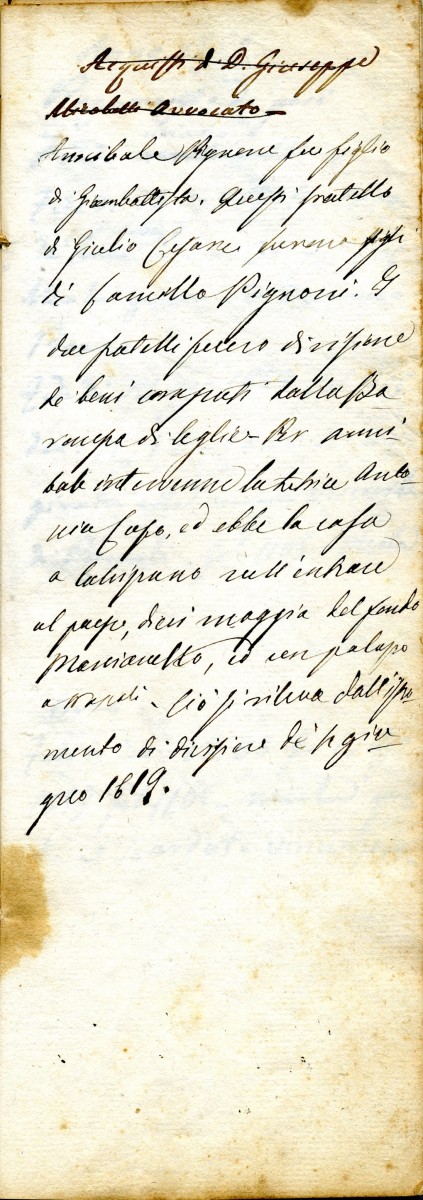 Acquisti di D. Giuseppe
Mirabelli Avvocato
Annibale Pignone fu figlio
di Giambattista. Questi fratello
di Giulio Cesare furono figli
di Camillo Pignoni. I
due fratelli fecero divisione
de beni comprati dalla Ba
di leglie - Per anni
bale intervenne la Anto
nia Capo, ed ebbe la casa
a Calvipano nell'entrare
al paese, dieci moggia del fondo
Marcianello, ed un palazzo
a Napoli. Ciò si rileva dall'istro
mento di divisione de' 12 giu
gno 1619.